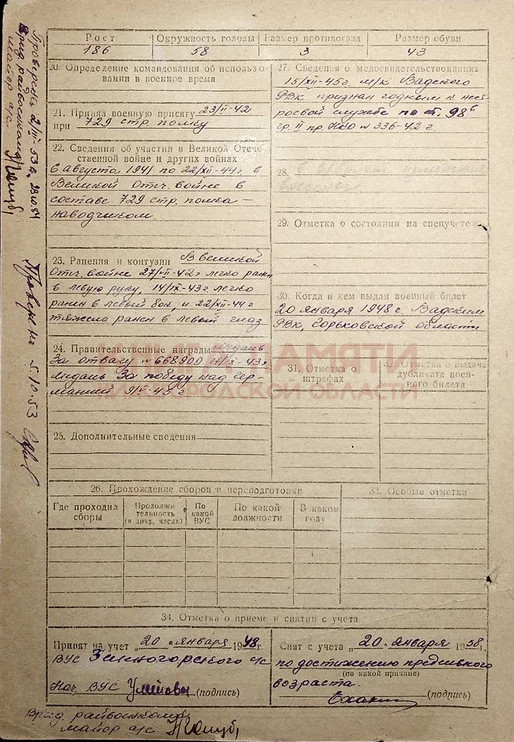 Рост Окружность головы Размер противогаза Размер обуви
186 58 3 43
20. Определение командования об использовании в военное время
21. Принял военную присягу 23/II-42
при 729 стр. полку
22. Сведения об участии в Великой Отечественной войне и других войнах
с августа 1941 по 22/XII-44 г. в
Великой Отеч. войне в
составе 729 стр. полка -
наводчиком.
23. Ранения и контузии В великой
Отч. войне 27/II-42 г легко ранен
в левую руку, 14/IX-43 г легко
ранен в левый бок, и 22/XII-44 г
тяжело ранен в левый глаз
24. Правительственные награды медаль
За отвагу № 668909
медаль За победу над Гер-
манией 9/V-45 г
25. Дополнительные сведения
27. Сведения о медосвидетельствованиях
15/XII-45 г. м/к Вадского
РВК признан годным к нест-
роевой службе по ст. 98
гр. II пр. НКО № 336-42 г
28.
29. Отметка о состоянии на спецучете
30. Когда и кем выдан военный билет
20 января 1948 г. Вадским
РВК, Горьковской области
31. Отметка о штрафах
32. Отметка о выдаче дубликата военного билета
КНИГА ПАМЯТИ
НИЖЕГОРОДСКОЙ ОБЛАСТИ
26. Прохождение сборов и переподготовки
Где проходил сборы Продолжительность (в днях, часах) По какой ВУС По какой должности В каком году
33. Особые отметки
34. Отметка о приеме и снятии с учета
Принят на учет „20 „ января 1948 г.
ВУС Зеленогорского с/с
Нач. ВУС (подпись)
Снят с учета „20 „ января 1958 г.
по достижению предельного
(по какой причине)
возраста.
(подпись)
Вр.и.д. райвоенкома
майор а/с
Проверено 2/III 53 г.
Вр.и.д. райвоенкома
майор а/с
Проверено 5.10.53